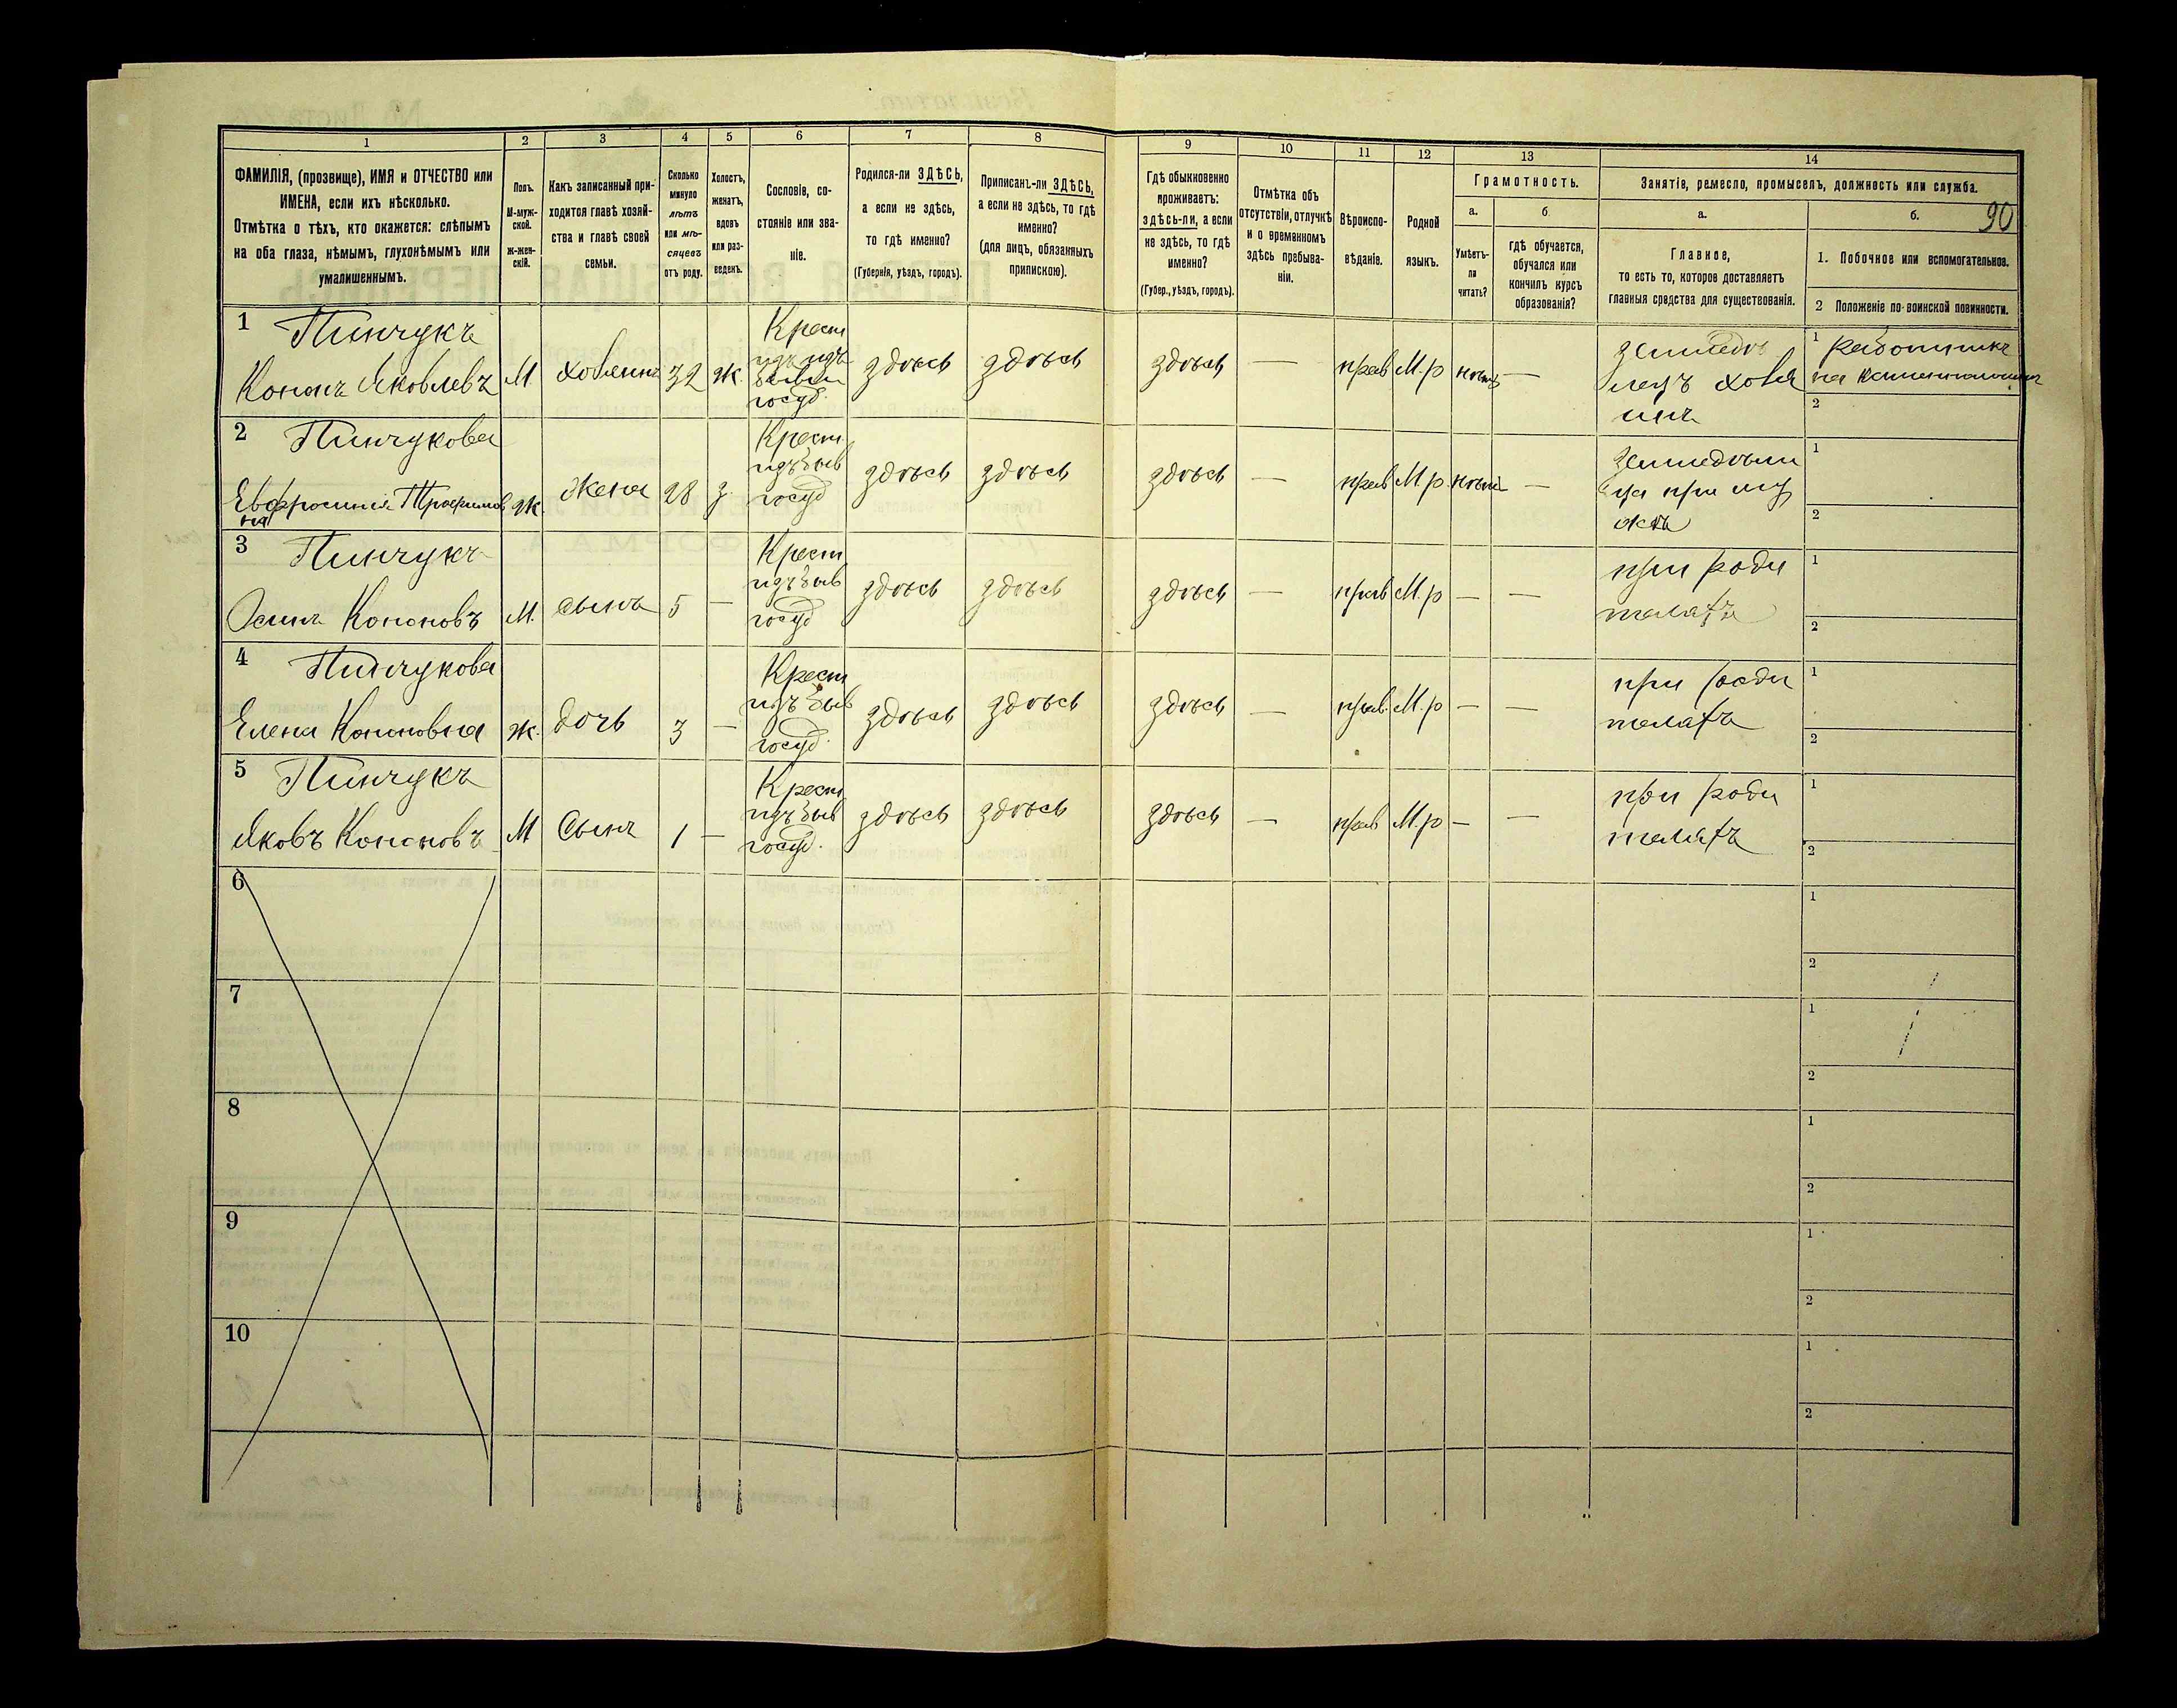 1 2 3 4 5 6 7 8 9 10 11 12 13 14
ФАМИЛІЯ, (прозвище), ИМЯ и ОТЧЕСТВО или
ИМЕНА, если ихъ нѣсколько.
Отмѣтка о тѣхъ, кто окажется: слѣпымъ
на оба глаза, нѣмымъ, глухонѣмымъ или
умалишеннымъ.
Полъ.
М-муж-
ской.
Ж-жен-
скій.
Какъ записанный при-
ходится главѣ хозяй-
ства и главѣ своей
семьи.
Сколько
минуло
лѣтъ
или мѣ-
сяцевъ
отъ роду.
Холостъ,
женатъ,
вдовъ
или раз-
веденъ.
Сословіе, со-
стояніе или зва-
ніе.
Родился-ли ЗДѢСЬ,
а если не здѣсь,
то гдѣ именно?
(Губернія, уѣздъ, городъ).
Приписанъ-ли ЗДѢСЬ,
а если не здѣсь, то гдѣ
именно?
(для лицъ, обязанныхъ
припискою).
Гдѣ обыкновенно
проживаетъ:
здѣсь-ли, а если
не здѣсь, то гдѣ
именно?
(Губер., уѣздъ, городъ).
Отмѣтка объ
отсутствіи, отлучкѣ
и о временномъ
здѣсь пребыва-
ніи.
Вѣроиспо-
вѣданіе.
Родной
языкъ.
Грамотность.
а.
Умѣетъ-
ли
читать?
б.
гдѣ обучается,
обучался или
кончилъ курсъ
образованія?
Занятіе, ремесло, промыселъ, должность или служба.
а.
Главное,
то есть то, которое доставляетъ
главныя средства для существованія.
б.
90
1. Побочное или вспомогательное.
2 Положеніе по воинской повинности.
1 Пинчукъ
Кононъ Яковлевъ
М
хозяинъ
32
ж.
Крест
бывш
госуд.
здѣсь
здѣсь
здѣсь
—
прав
М.р
нѣтъ
—
земледѣ
лецъ хозя
инъ
1 работникъ
на
2
2 Пинчукова
Евфросинія Трофимов
на
ж.
жена
28
з.
Крест
изъ быв
госуд
здѣсь
здѣсь
здѣсь
—
прав
М.р.
нѣтъ
—
земледѣли
ца при му
жѣ
1
2
3 Пинчукъ
Осипъ Кононовъ
М.
сынъ
5
—
Крест
изъ быв
госуд
здѣсь
здѣсь
здѣсь
—
прав
М.р
—
—
при роди
теляхъ
1
2
4 Пинчукова
Елена Кононовна
ж.
дочь
3
—
Крест
изъ быв
госуд.
здѣсь
здѣсь
здѣсь
—
прав.
М.р
—
—
при роди
теляхъ
1
2
5 Пинчукъ
Яковъ Кононовъ
М
Сынъ
1
—
Крест
изъ быв
госуд.
здѣсь
здѣсь
здѣсь
—
прав
М.р
—
—
при роди
теляхъ
1
2
6
1
2
7
1
2
8
1
2
9
1
2
10
1
2